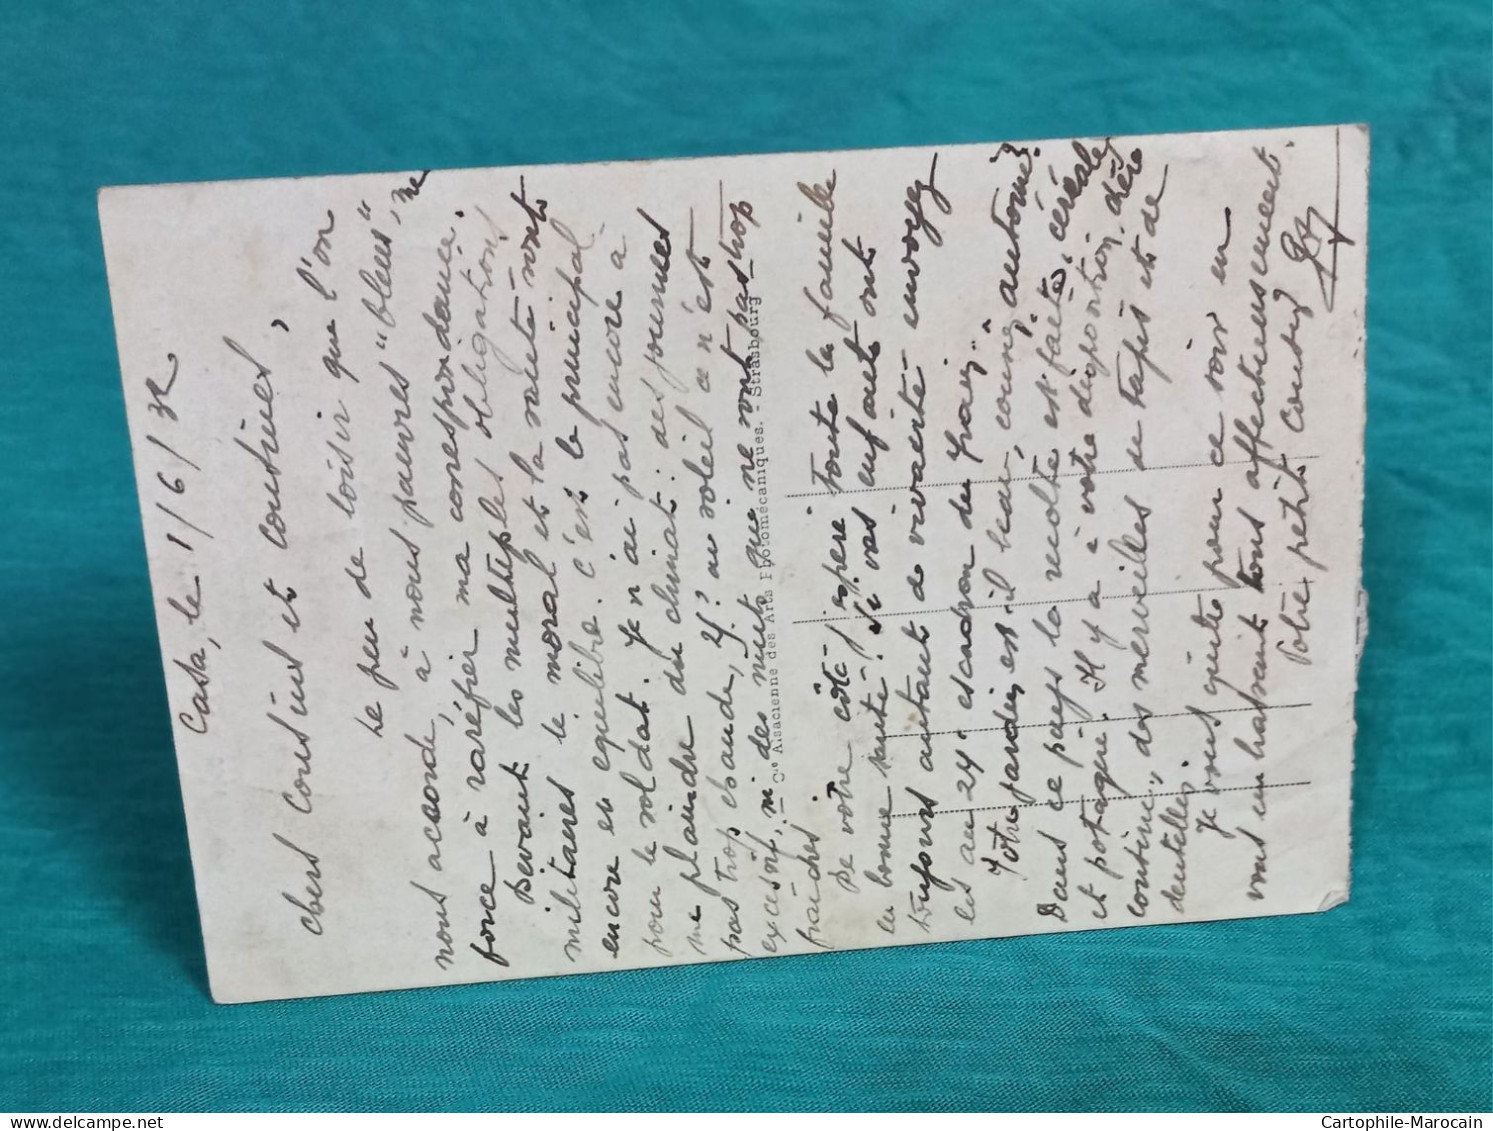 Casa, le 1/6/32
Chers Cousins et Cousines,
Le peu de loisir que l'on
nous accorde, à nous pauvres "bleus", me
force à raréfier ma correspondance.
Devant les multiples obligations
militaires le moral et la santé sont
encore en équilibre. C'est le principal
pour le soldat. Je n'ai pas encore à
me plaindre du climat: des journées
pas trop chaudes, 45? au soleil ce n'est
excessif, ni des nuits qui ne sont pas trop
fraîches
— Cie Alsacienne des Arts Photomécaniques. - Strasbourg —
De votre côté j'espère toute la famille
en bonne santé. Si vos enfants ont
toujours autant de vivacité envoyez
les au 24e escadron du train.
Votre jardin est-il beau, cousine automne?
Dans ce pays la récolte est faite, céréales
et potagère. Il y a à votre disposition,
cousine, des merveilles de tapis et de
dentelles.
Je vous quitte pour ce soir en
vous embrassant tous affectueusement.
Votre petit cousin
Cartophile-Marocain